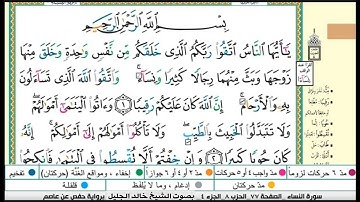 بِسْمِ اللَّهِ الرَّحْمَٰنِ الرَّحِيمِ
يَٰٓأَيُّهَا ٱلنَّاسُ ٱتَّقُوا۟ رَبَّكُمُ ٱلَّذِى خَلَقَكُم مِّن نَّفْسٍ وَٰحِدَةٍ وَخَلَقَ مِنْهَا
زَوْجَهَا وَبَثَّ مِنْهُمَا رِجَالًا كَثِيرًا وَنِسَآءً ۚ وَٱتَّقُوا۟ ٱللَّهَ ٱلَّذِى تَسَآءَلُونَ
بِهِۦ وَٱلْأَرْحَامَ ۚ إِنَّ ٱللَّهَ كَانَ عَلَيْكُمْ رَقِيبًا ١ وَءَاتُوا۟ ٱلْيَتَٰمَىٰٓ أَمْوَٰلَهُمْ ۖ
وَلَا تَتَبَدَّلُوا۟ ٱلْخَبِيثَ بِٱلطَّيِّبِ ۖ وَلَا تَأْكُلُوٓا۟ أَمْوَٰلَهُمْ إِلَىٰٓ أَمْوَٰلِكُمْ ۚ إِنَّهُۥ
كَانَ حُوبًا كَبِيرًا ٢ وَإِنْ خِفْتُمْ أَلَّا تُقْسِطُوا۟ فِى ٱلْيَتَٰمَىٰ فَٱنكِحُوا۟
مدّ ٦ حركات لزوماً مدّ ٢ أو ٤ أو ٦ جوازاً إخفاء ، ومواقع الغُنَّة (حركتان) تفخيم
مدّ واجب ٤ أو ٥ حركات مدّ حركتان إدغام ، وما لا يُلفظ قلقلة
سورة النساء الصفحة ٧٧ الحزب ٨ الجزء ٤ بصوت الشيخ خالد الجليل برواية حفص عن عاصم